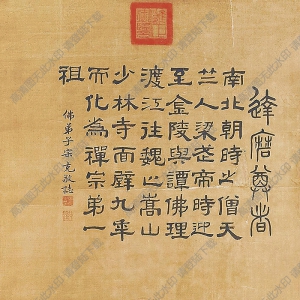 達磨尊者
南北朝時之僧天
竺人梁武帝時迎
至金陵與譚佛理
渡江往魏之嵩山
少林寺面壁九年
而化為禪宗第一
祖
佛弟子宗克敬誌